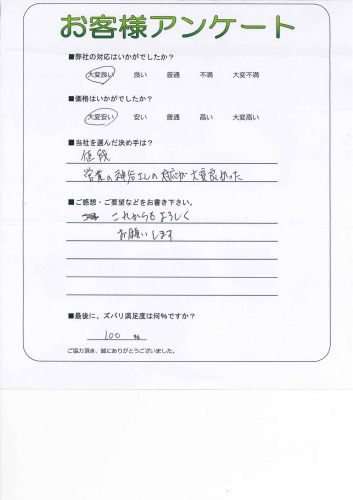 お客様アンケート
■弊社の対応はいかがでしたか？
大変良い 良い 普通 不満 大変不満
■価格はいかがでしたか？
大変安い 安い 普通 高い 大変高い
■当社を選んだ決め手は？
値段
営業の神谷さんの対応が大変良かった
■ご感想・ご要望などをお書き下さい。
これからもよろしく
お願いします
■最後に、ズバリ満足度は何％ですか？
100 ％
ご協力頂き、誠にありがとうございました。